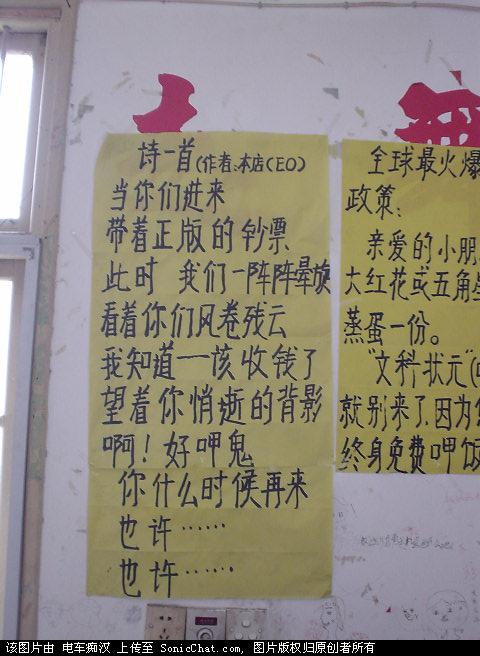 诗一首(作者:本店CEO)
当你们进来
带着正版的钞票
此时 我们一阵阵晕旋
看着你们风卷残云
我知道一该收钱了
望着你悄逝的背影
啊!好呷鬼
你什么时候再来
也许……
也许……
全球最火爆
政策:
亲爱的小朋
大红花或五角星
蒸蛋一份。
"文科状元"(
就别来了,因为
终身免费呷饭
该图片由 电车痴汉 上传至 SonicChat.com , 图片版权归原创者所有